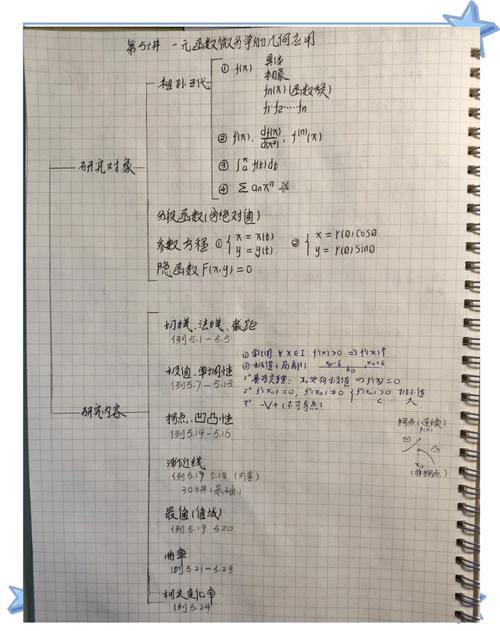 第5讲 一元函数微分学的几何应用
研究对象
祖孙三代
① f(x) 具体
抽象
fn(x) (函数族)
f1·f2·····fn
② f(x), df(x)/d(x²), f⁽ⁿ⁾(x)
③ ∫ₐˣ f(t)dt
④ ∑ anxⁿ
分段函数(含绝对值)
参数方程 ① { x = x(t) y = y(t) ② { x = r(θ)cosθ y = r(θ)sinθ
隐函数 F(x,y) = 0
研究内容
切线、法线、截距
例5.1-5.5
极值、单调性
例5.7-5.13
① 单调 ∀x∈I f'(x)>0 ⇒ f(x)↑
② 极值(局部)
1° 费马定理: x₀处有极值 ⇒ f'(x₀)=0
2° f'(x₀)=0, f''(x₀)≠0 { f''(x₀)>0 极小值
< 大
拐点、凹凸性
例5.14-5.16
拐点(连续)
f(x)
x₀
渐近线
例5.17 5.18
30讲(基础)
最值(值域)
例5.19 5.20
曲率
例5.21-5.23
相关变化率
例5.24